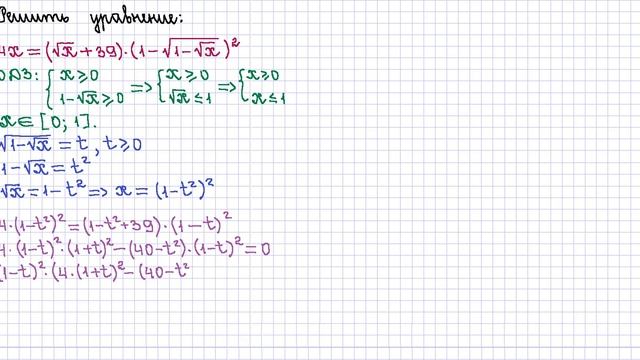 Решить уравнение:
4x = (√x + 39)·(1 - √(1 - √x))²
ОДЗ: { x ≥ 0 => { x ≥ 0 => { x ≥ 0
1 - √x ≥ 0 √x ≤ 1 x ≤ 1
x ∈ [0; 1].
√(1 - √x) = t, t ≥ 0
1 - √x = t²
√x = 1 - t² => x = (1 - t²)²
4·(1 - t²)² = (1 - t² + 39)·(1 - t)²
4·(1 - t)²·(1 + t)² - (40 - t²)·(1 - t)² = 0
(1 - t)²·(4·(1 + t)² - (40 - t²